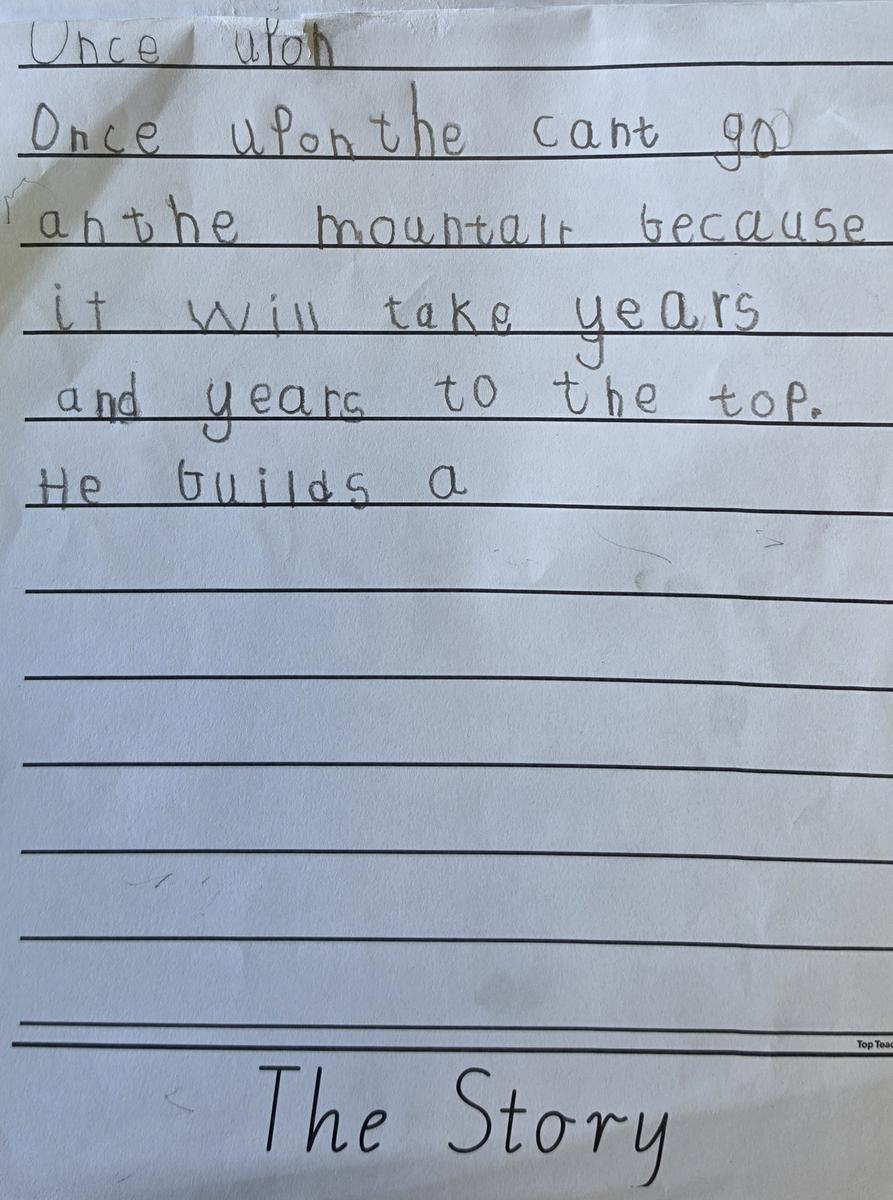 Once upon
Once upon the cant go
an the mountain because
it will take years
and years to the top.
He builds a
Top Teac
The Story